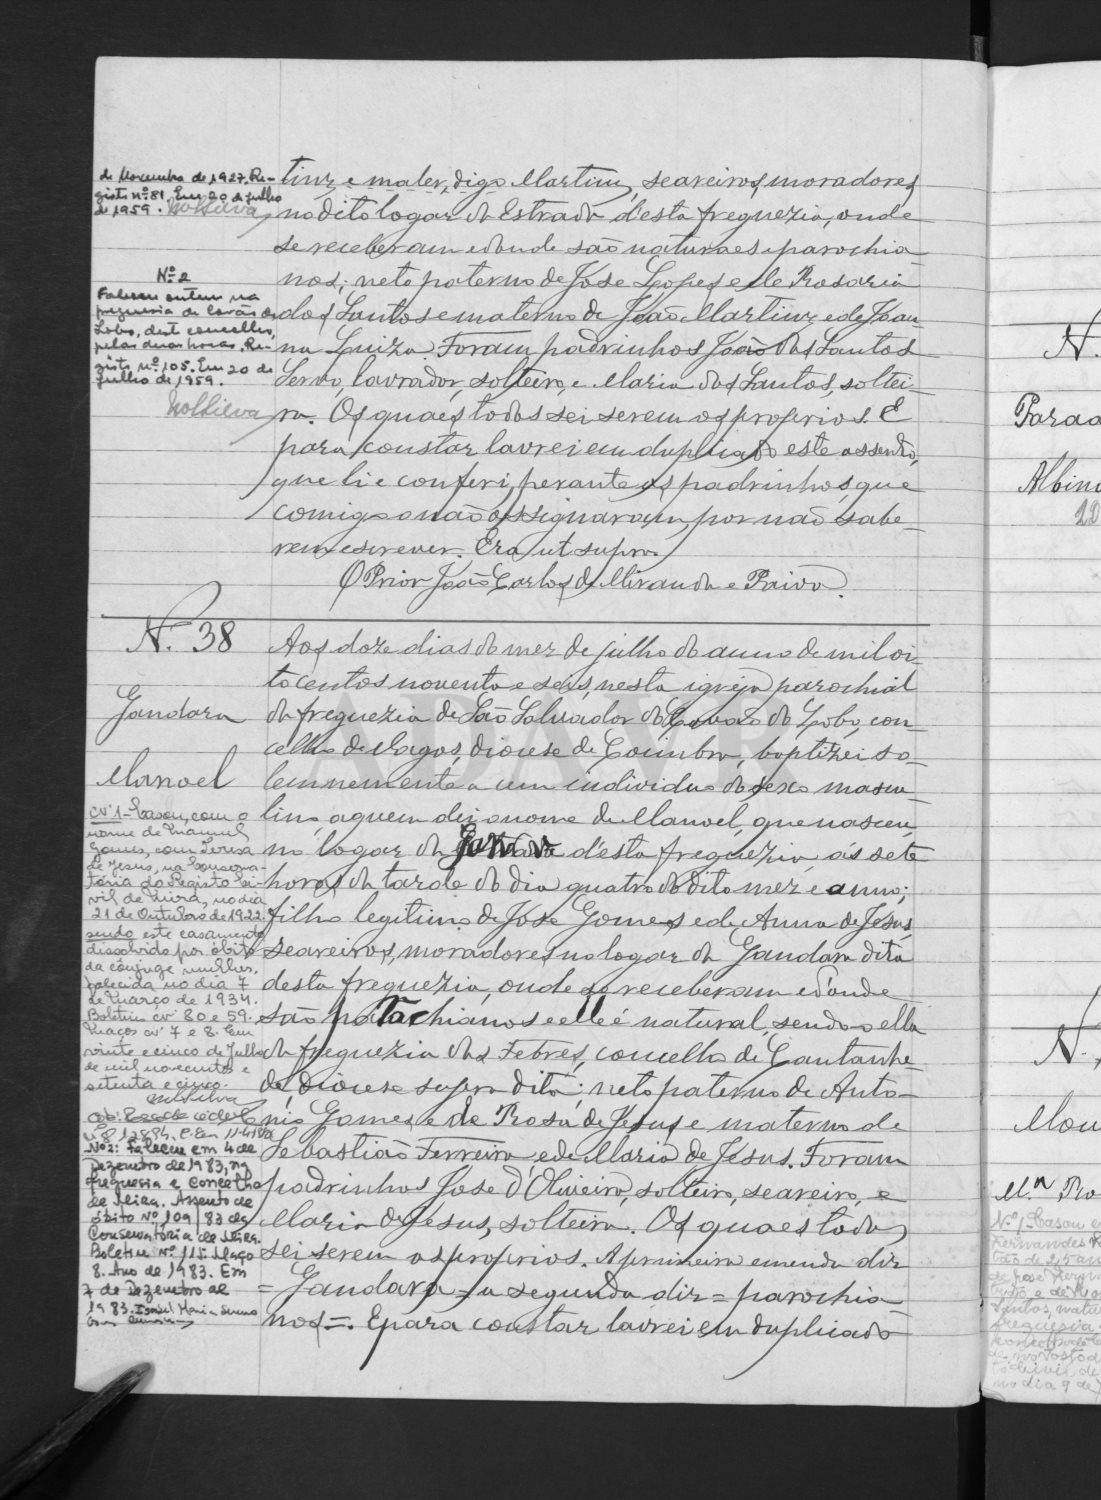 de Novembro de 1927. Re-
gisto nº 81. Em 20 de Julho
de 1959.
Nº 2
Faleceu ontem na
freguesia de Covão do
Lobo, deste concelho,
pelas duas horas. Re-
gisto nº 105. Em 20 de
Julho de 1959.
tinz e mater, digo Martinz, seareiros, moradores
no dito logar da Estrada d'esta freguezia, onde
se receberam e donde são naturaes e parochia-
nos; neto paterno de José Lopes e de Rosaria
dos Santos e materno de João Martinz e de Joan-
na Luiza. Foram padrinhos João dos Santos
Servo, lavrador, solteiro, e Maria dos Santos, soltei-
ra. Os quaes todos sei serem os proprios. E
para constar lavrei em duplicado este assento,
que li e conferi, perante os padrinhos, que
comigo o não assignaram por não sabe-
rem escrever. Era ut supra.
O Prior João Carlos de Miranda e Paiva.
N. 38
Gandara
Manoel
Nº 1 - Casou, com o
nome de Manuel
Gomes, com Teresa
de Jesus, na Conserva-
tória do Registo Ci-
vil de Mira, no dia
21 de Outubro de 1922
sendo este casamento
dissolvido por óbito
da cônjuge mulher,
falecida no dia 7
de Março de 1934.
Boletins nº 80 e 59.
Maços nº 7 e 8. Em
vinte e cinco de Julho
de mil novecentos e
setenta e cinco.
Nº 2: Faleceu em 4 de
Dezembro de 1983, na
freguesia e Concelho
de Mira. Assento de
óbito Nº 109/83 da
Conservatória de Mira.
Boletim Nº 115. Maço
8. Ano de 1983. Em
7 de Dezembro de
1983.
Aos doze dias do mez de julho do anno de mil oi-
tocentos noventa e seis, nesta igreja parochial
da freguezia de São Salvador do Covão do Lobo, con-
celho de Vagos, diocese de Coimbra, baptizei so-
lemnemente a um individuo do sexo mascu-
lino, a quem dei o nome de Manoel, que nasceu
no logar da Gandara d'esta freguezia, ás sete
horas da tarde do dia quatro do dito mez e anno;
filho legitimo de José Gomes e de Anna de Jesus
seareiros, moradores no logar da Gandara dita
desta freguezia, onde se receberam e d'onde
são parochianos e elle é natural, sendo o ella
da freguezia das Febres, concelho de Cantanhe-
de, diocese supra dita; neto paterno de Anto-
nio Gomes, e de Rosa de Jesus e materno de
Sebastião Ferreira e de Maria de Jesus. Foram
padrinhos José d'Oliveira, solteiro, seareiro, e
Maria de Jesus, solteira. Os quaes todos
sei serem os proprios. A primeira emenda diz
= Gandara = a segunda diz = parochia-
nos =. E para constar lavrei em duplicado
N.
Albin
N.